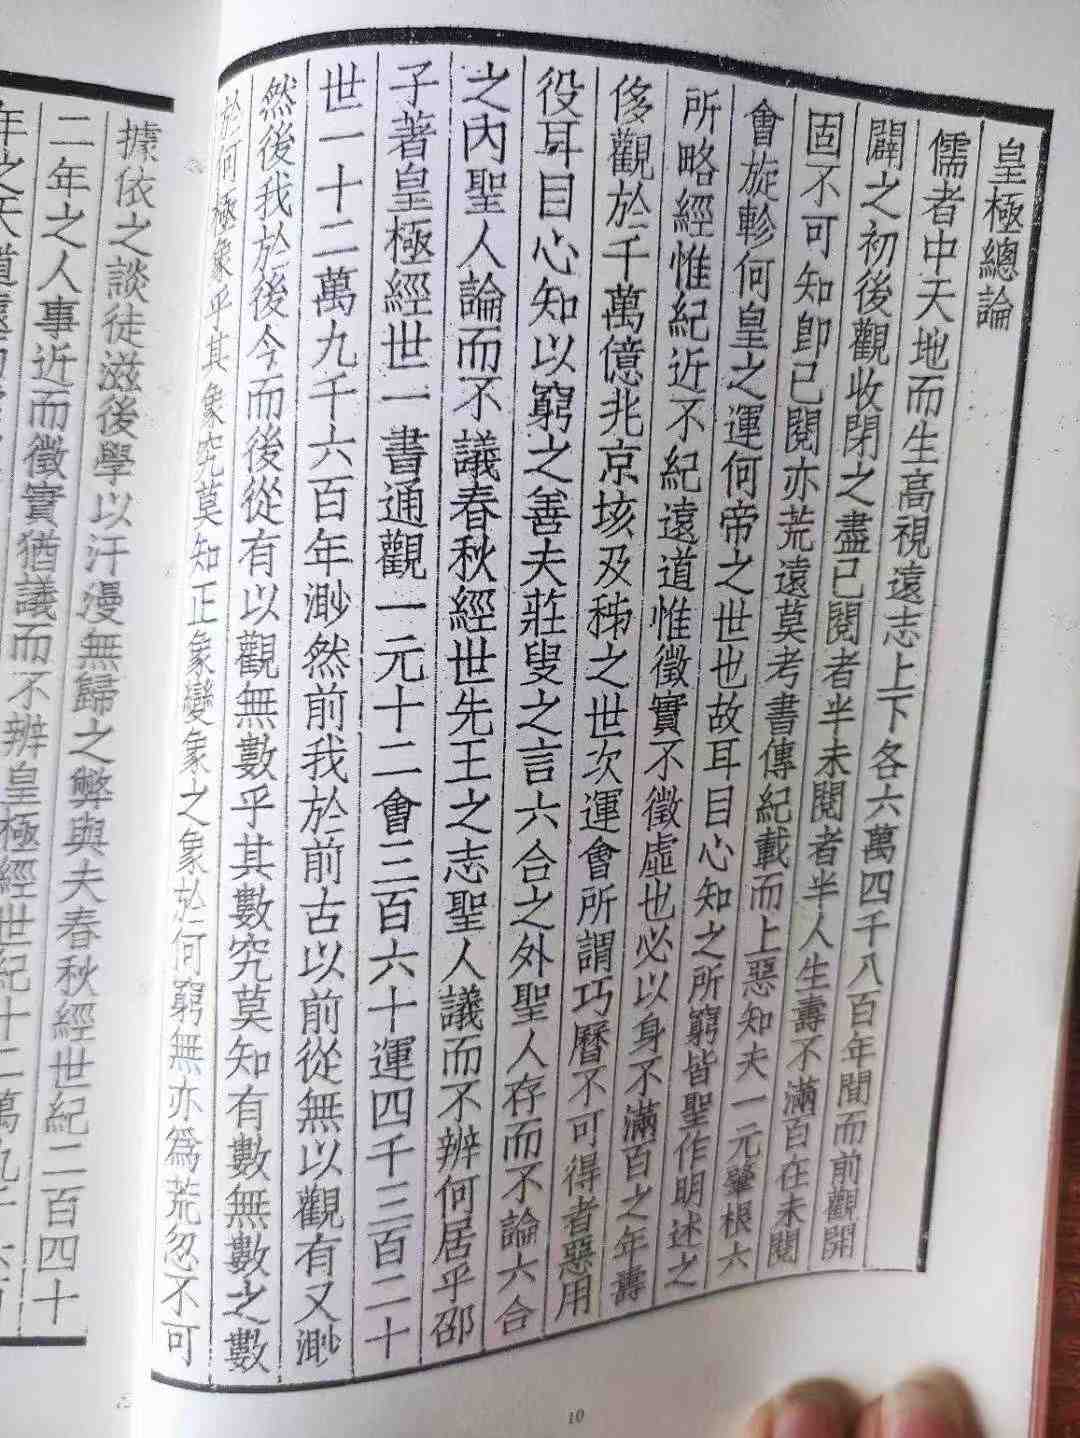 皇極總論
儒者中天地而生高視遠志上下各六萬四千八百年間而前觀開
闢之初後觀收閉之盡已閱者半未閱者半人生壽不滿百在未閱
固不可知卽已閱亦荒遠莫考書傳紀載而上惡知夫一元肇根六
會旋軫何皇之運何帝之世也故耳目心知之所窮皆聖作明述之
所略經惟紀近不紀遠道惟徵實不徵虛也必以身不滿百之年壽
侈觀於千萬億兆京垓及秭之世次運會所謂巧曆不可得者惡用
役耳目心知以窮之善夫莊叟之言六合之外聖人存而不論六合
之內聖人論而不議春秋經世先王之志聖人議而不辨何居乎邵
子著皇極經世一書通觀一元十二會三百六十運四千三百二十
世一十二萬九千六百年渺然前我於前古以前從無以觀有又渺
然後我於後今而後從有以觀無數乎其數究莫知有數無數之數
於何極象乎其象究莫知正象變象之象於何窮無亦為荒忽不可
據依之談徒滋後學以汗漫無歸之弊與夫春秋經世紀二百四十
二年之人事近而徵實猶議而不辨皇極經世紀十二萬九千
年之天道遠
10